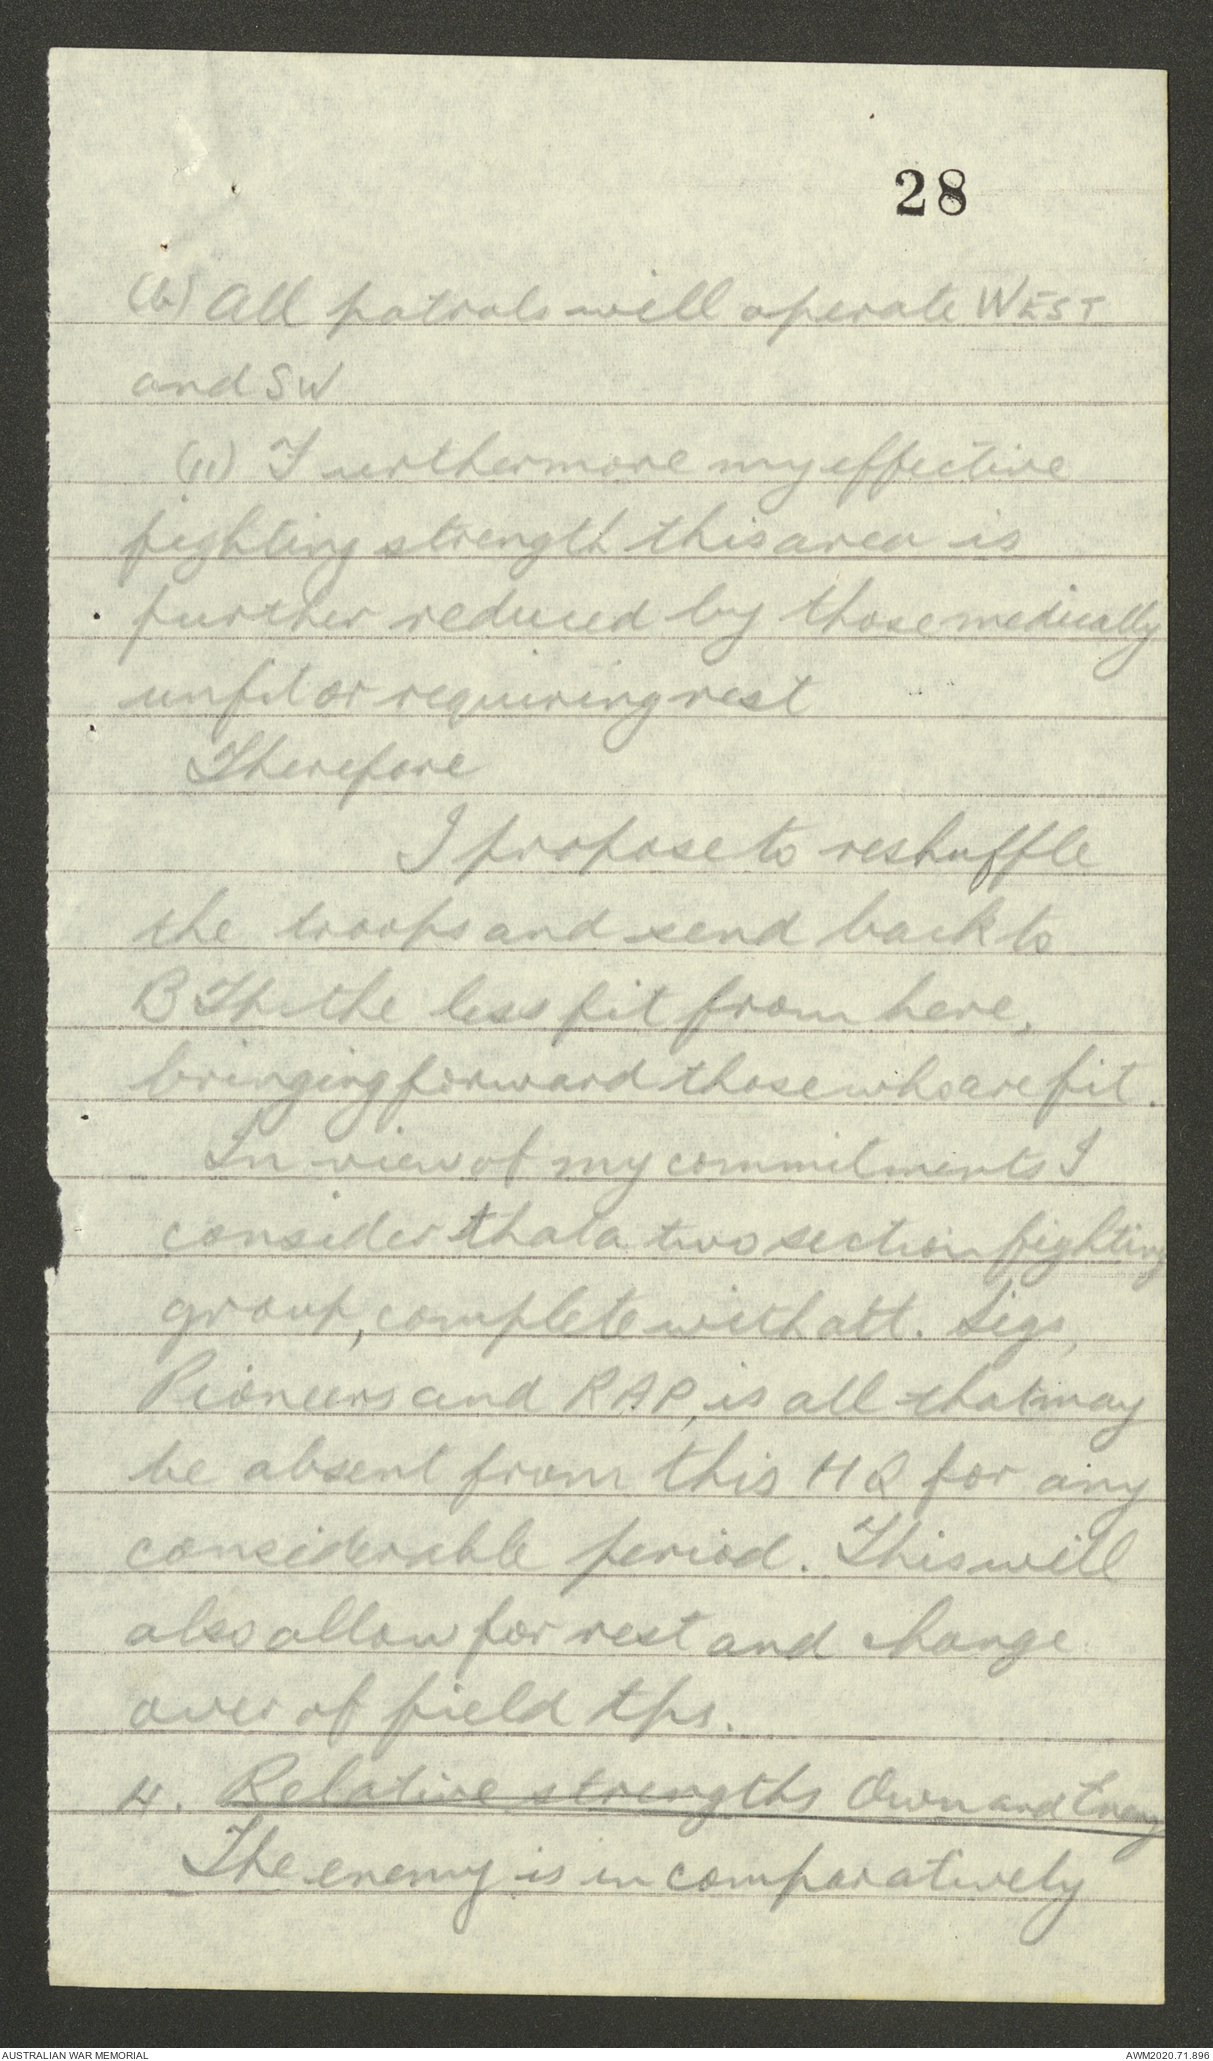 28
(b) All patrols will operate WEST
and SW
(ii) Furthermore my effective
fighting strength this area is
further reduced by those medically
unfit or requiring rest
Therefore
I propose to reshuffle
the troops and send back to
B the less fit from here,
bringing forward those who are fit.
In view of my commitments I
consider that a two section fighting
group, complete with att. Sigs,
Pioneers and RAP, is all that may
be absent from this HQ for any
considerable period. This will
also allow for rest and change
over of field tps.
4. Relative strengths Own and Enemy
The enemy is in comparatively
AUSTRALIAN WAR MEMORIAL
AWM2020.71.896